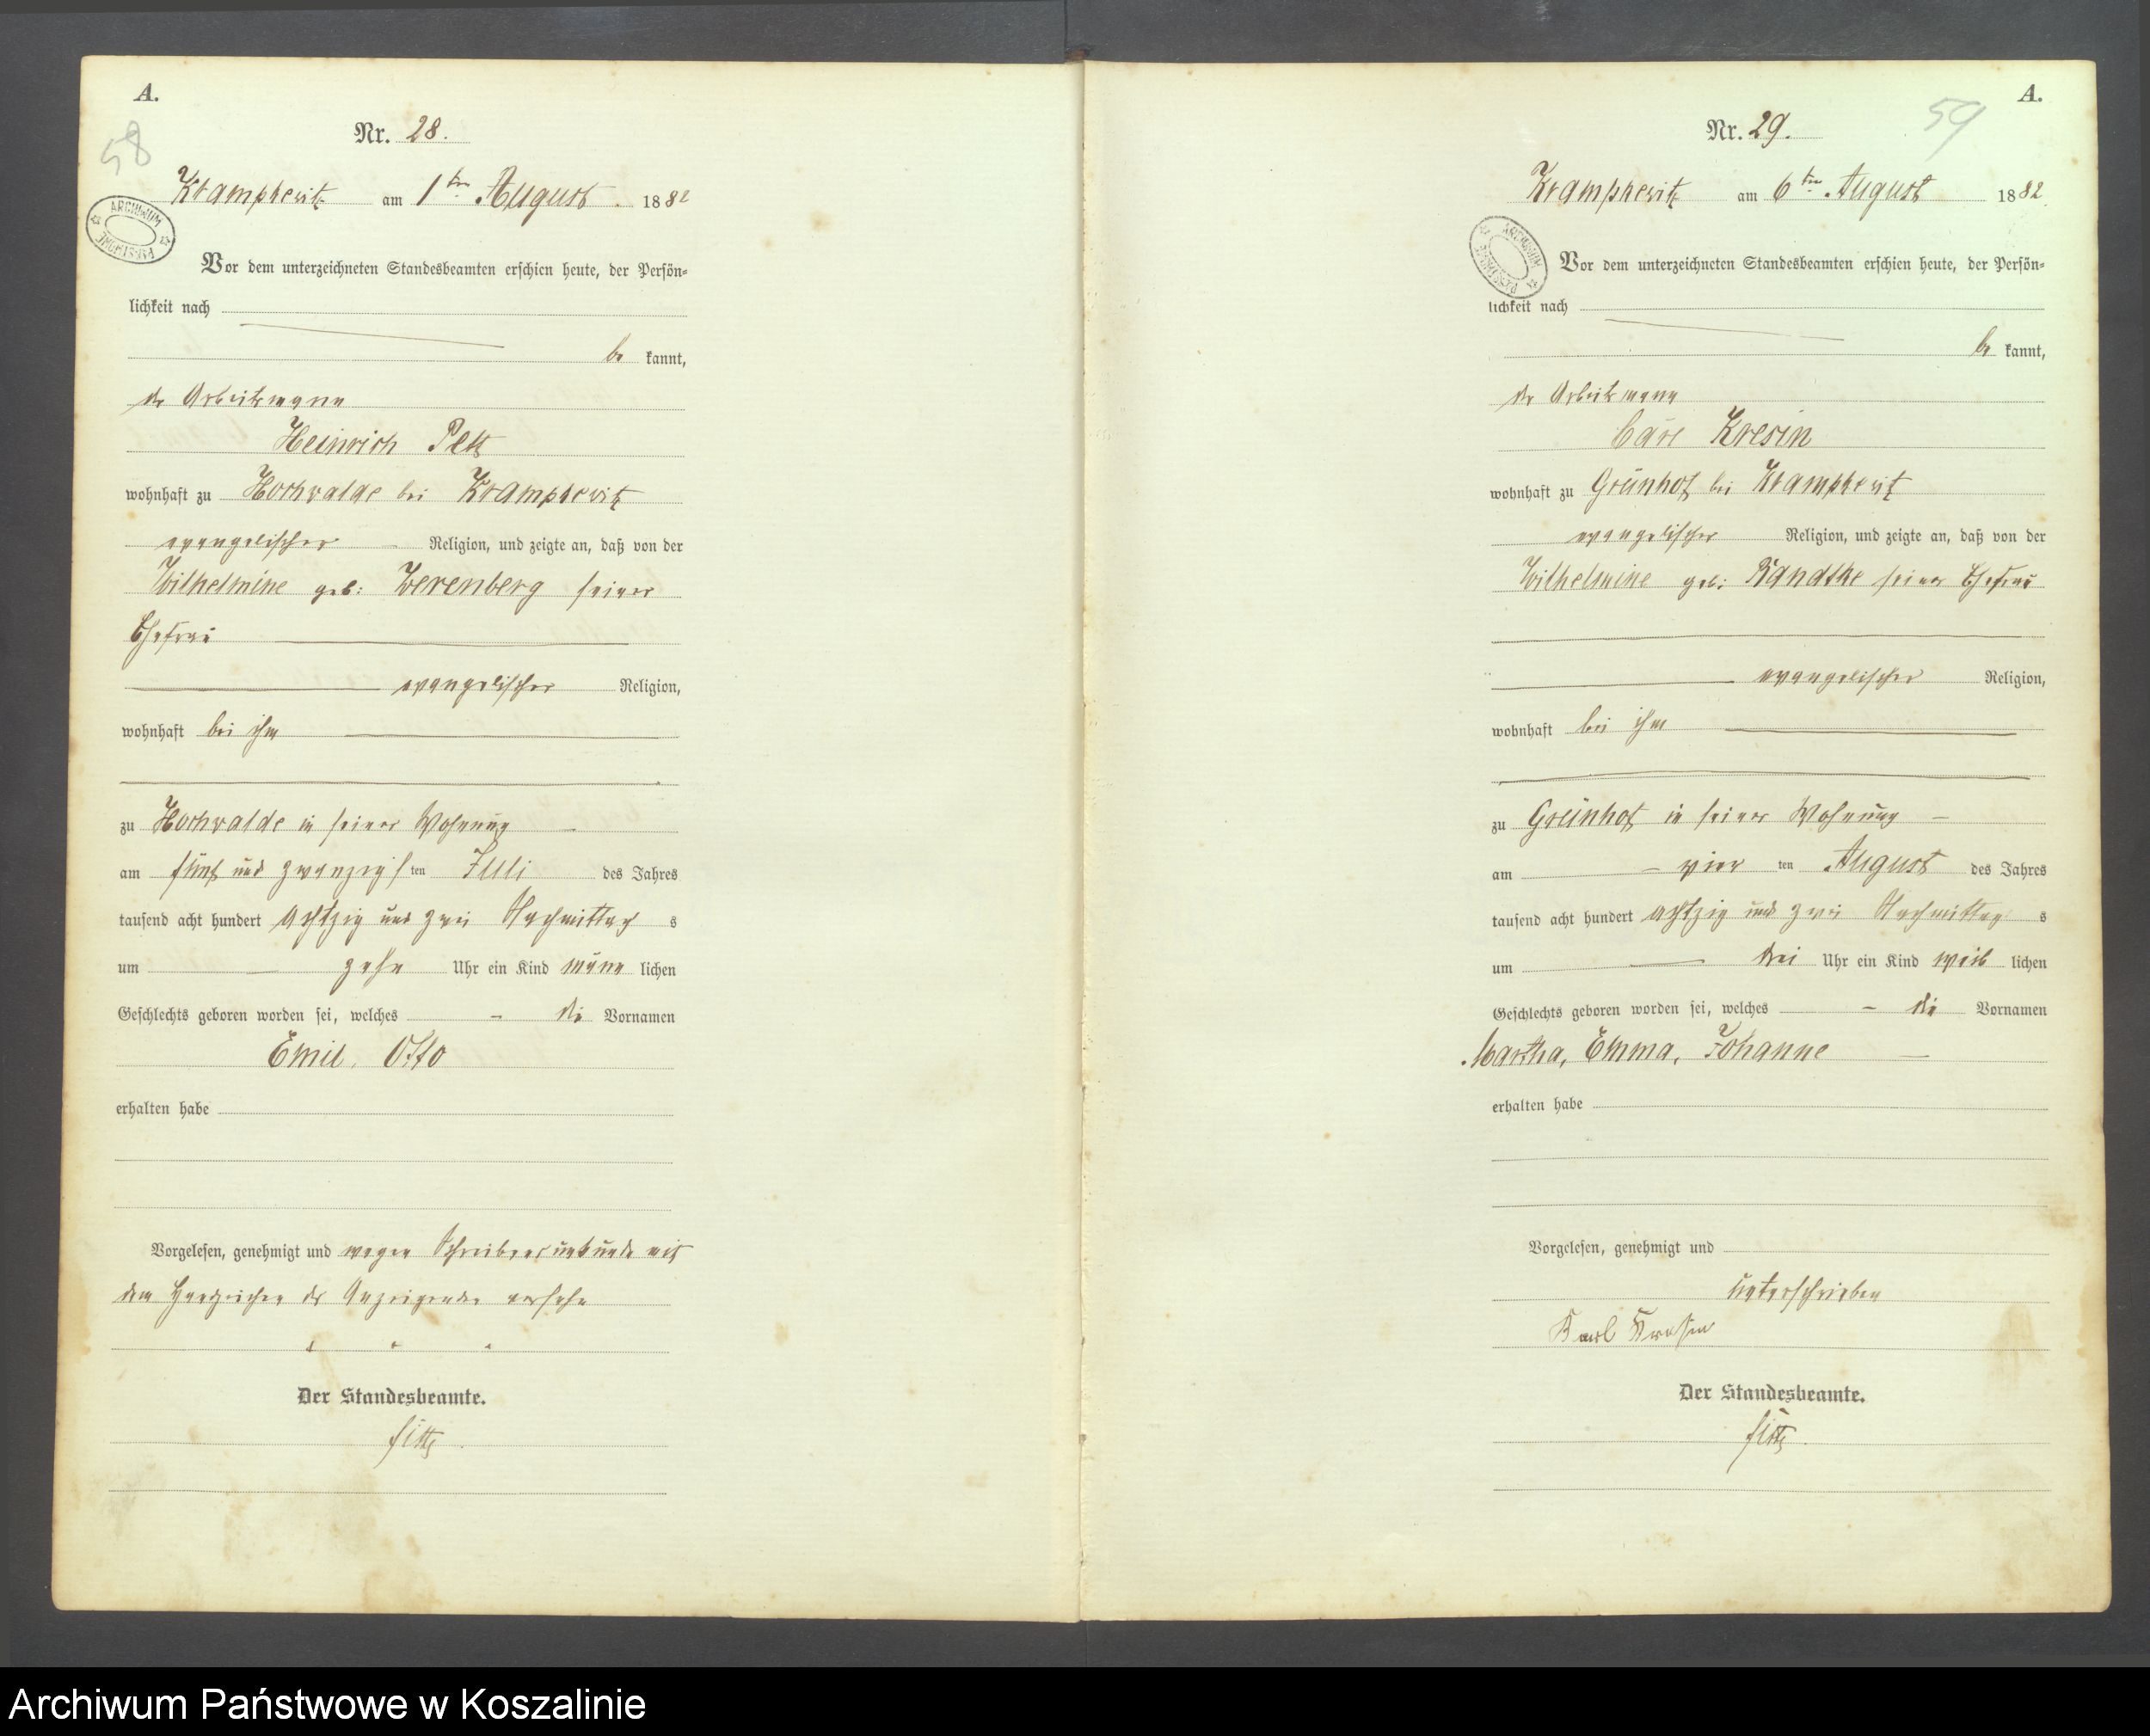 A.
58
Nr. 28.
Krampkewitz am 1ten August. 1882
ARCHIWUM PAŃSTWOWE
Vor dem unterzeichneten Standesbeamten erschien heute, der Persön=
lichkeit nach
be kannt,
der Arbeitsmann
Heinrich
wohnhaft zu Hochwalde bei Krampkewitz
evangelischer Religion, und zeigte an, daß von der
Wilhelmine geb: seiner
Ehefrau
evangelischer Religion,
wohnhaft bei ihm
zu Hochwalde in seiner Wohnung
am fünf und zwanzigsten Juli des Jahres
tausend acht hundert achtzig und zwei Nachmittags
um zehn Uhr ein Kind männlichen
Geschlechts geboren worden sei, welches die Vornamen
Emil, Otto
erhalten habe
Vorgelesen, genehmigt und wegen Schreibensunkunde mit
dem Handzeichen des Anzeigenden versehn
+ + +
Der Standesbeamte.
A.
59
Nr. 29.
Krampkewitz am 6ten August 1882.
ARCHIWUM PAŃSTWOWE
Vor dem unterzeichneten Standesbeamten erschien heute, der Persön=
lichkeit nach
be kannt,
der Arbeitsmann
Carl Kresin
wohnhaft zu Grünhof bei Krampkewitz
evangelischer Religion, und zeigte an, daß von der
Wilhelmine geb: Radtke seiner Ehefrau
evangelischer Religion,
wohnhaft bei ihm
zu Grünhof in seiner Wohnung
am vierten August des Jahres
tausend acht hundert achtzig und zwei Nachmittags
um drei Uhr ein Kind weiblichen
Geschlechts geboren worden sei, welches die Vornamen
Martha, Emma, Johanne
erhalten habe
Vorgelesen, genehmigt und
unterschrieben
Karl Kresin
Der Standesbeamte.
Archiwum Państwowe w Koszalinie